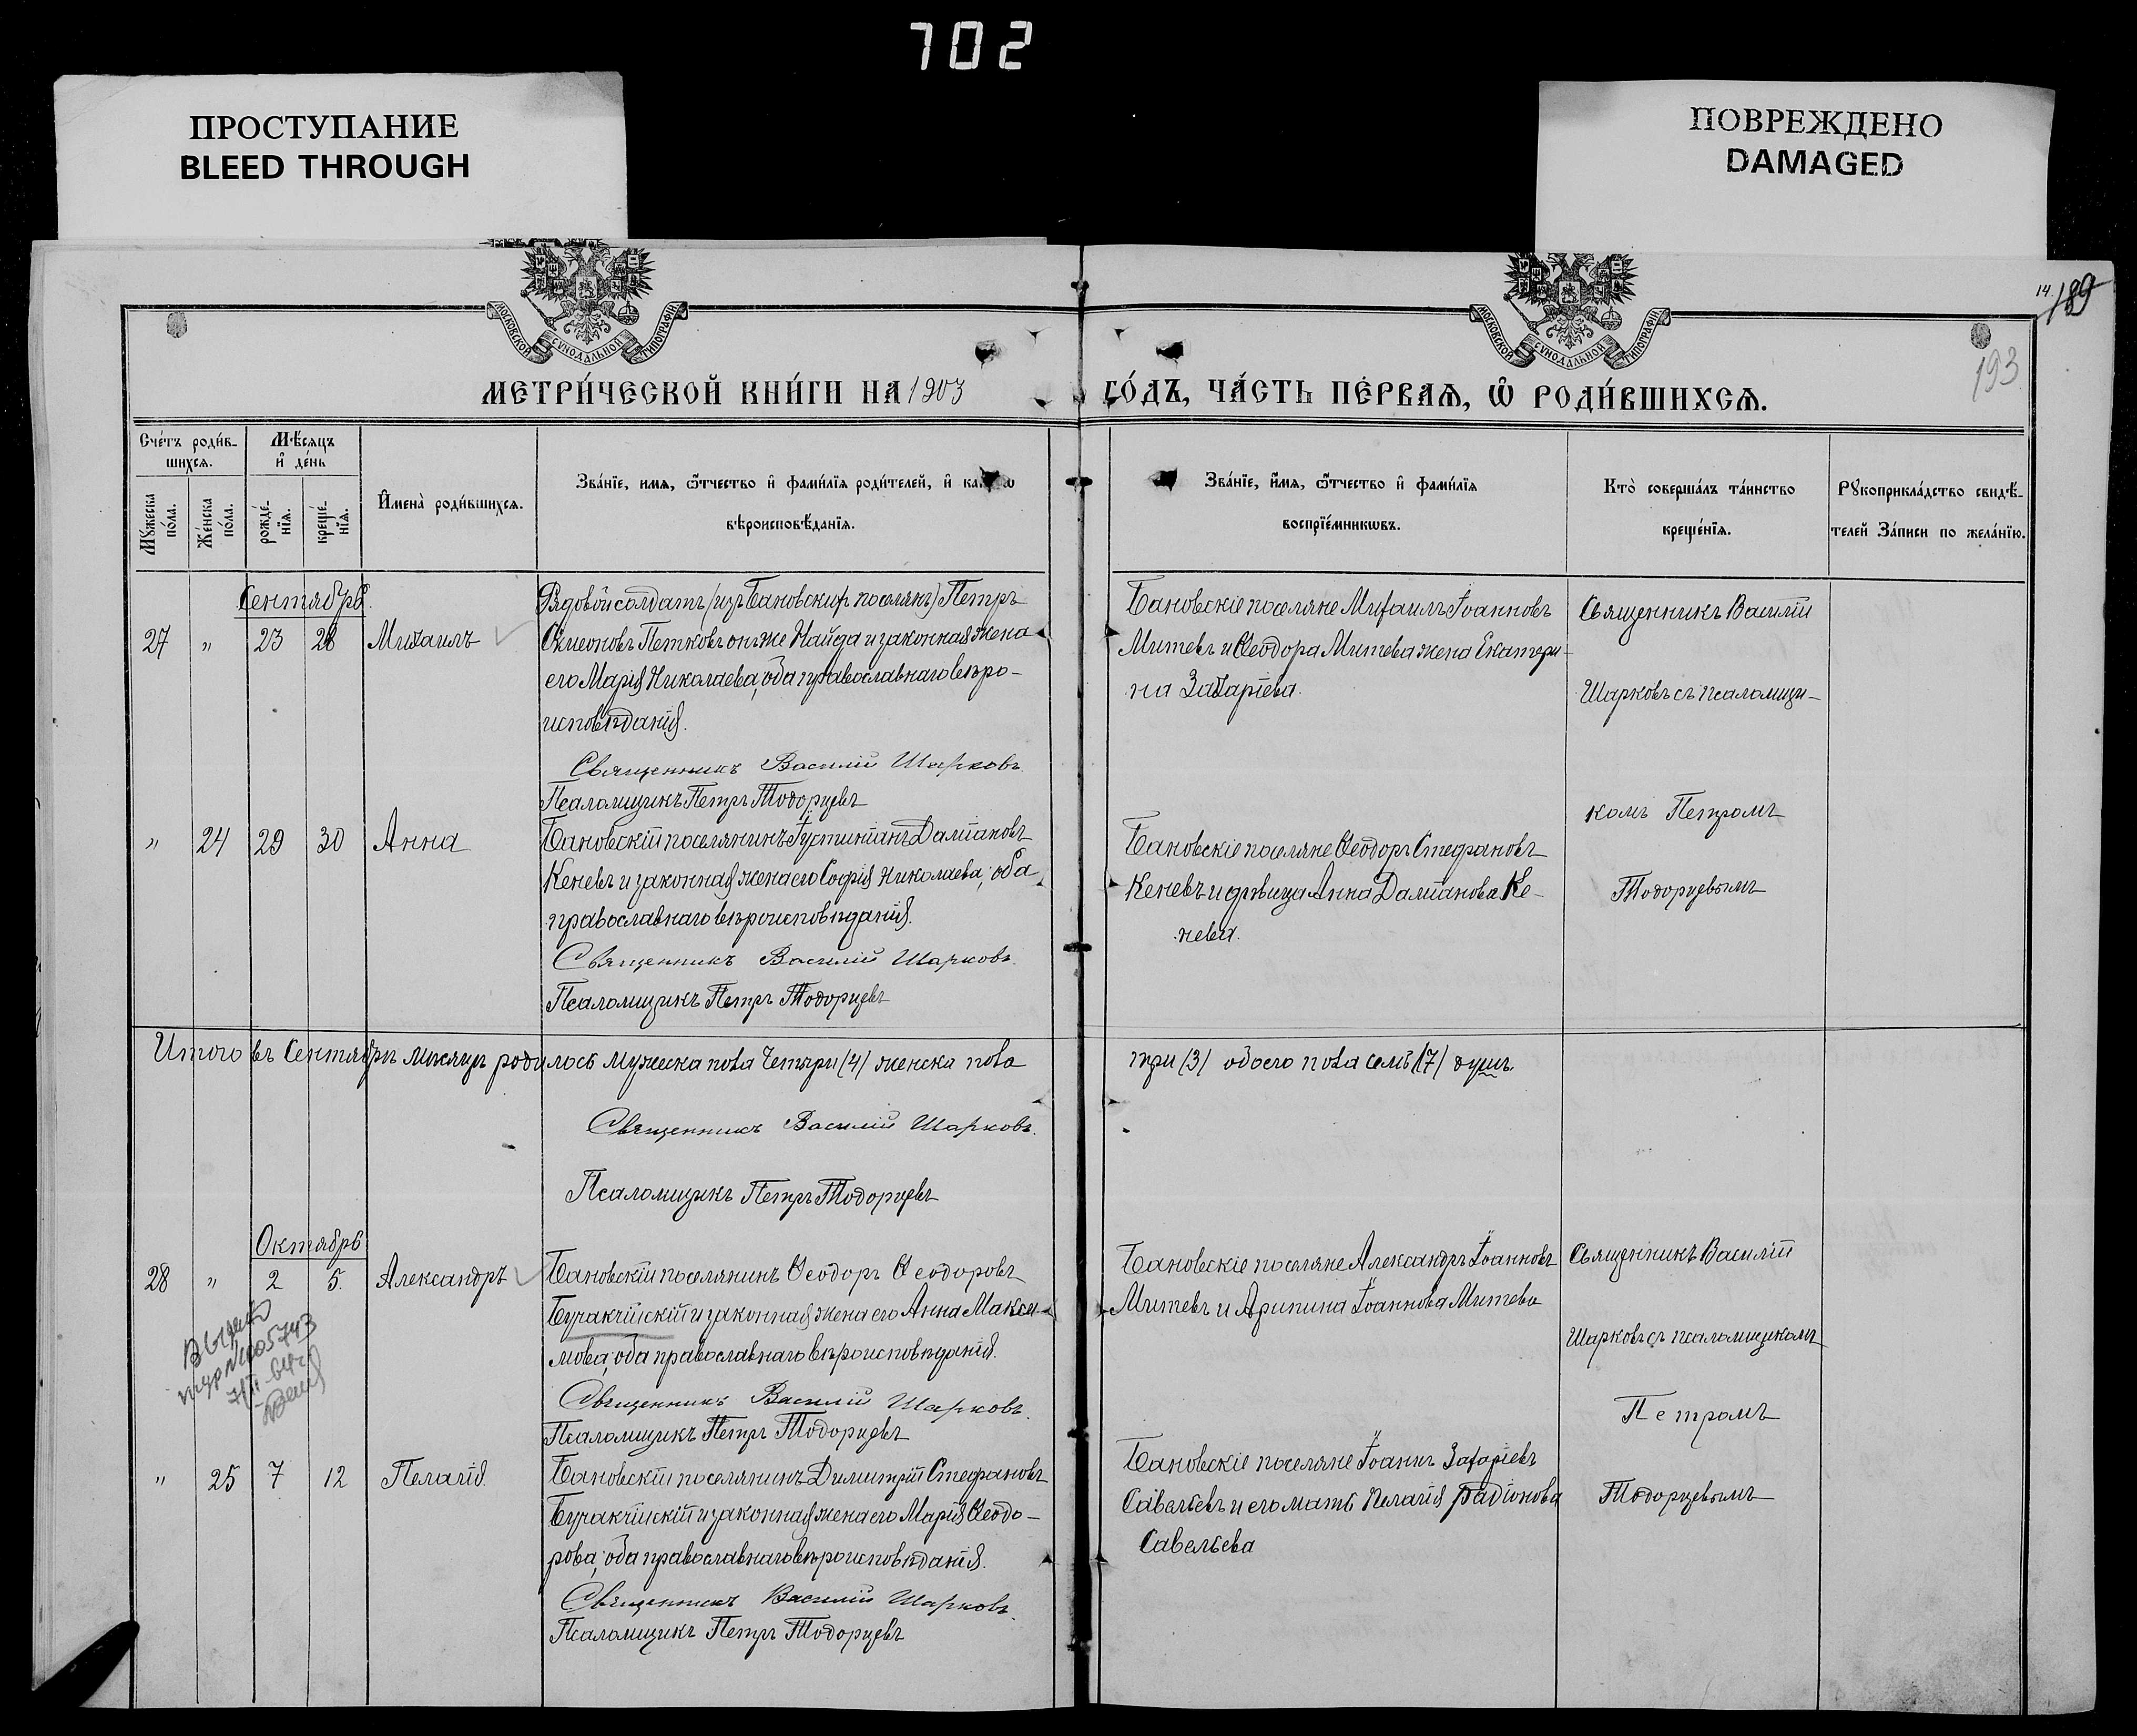 702
ПРОСТУПАНИЕ
BLEED THROUGH
ПОВРЕЖДЕНО
DAMAGED
МОСКОВСКОЙ СѴНОДАЛЬНОЙ ТИПОГРАФІИ
МОСКОВСКОЙ СѴНОДАЛЬНОЙ ТИПОГРАФІИ
14
189
193
МЕТРИ́ЧЕСКОЙ КНИ́ГИ НА 1903
ГО́ДЪ, ЧА́СТЬ ПЕ́РВАѦ, Ѡ҆ РОДИ́ВШИХСѦ.
Сче́тъ роди́в-
шихсѧ.
Мꙋ́жеска по́ла.
Же́нска по́ла.
Мѣ́сѧцъ
и҆ де́нь
рожде́-
нїѧ.
креще́-
нїѧ.
И҆мена̀ роди́вшихсѧ.
Зва́нїе, имѧ, ѿтчество и҆ фами́лїѧ роди́телей, и҆
вѣроисповѣ́данїѧ.
Зва́нїе, и҆́мѧ, ѿтчество и҆ фами́лїѧ
воспрїе́мникѡвъ.
Кто̀ соверша́лъ та́инство
креще́нїѧ.
Рꙋкоприкла́дство свидѣ́-
телей За́писи по жела́нїю.
Сентябрь
27 " 23 28 Михаилъ
Рядовой солдатъ (изъ Бановскихъ поселянъ) Петръ
Симеоновъ Петковъ онъ же Найда и законная жена
его Марія Николаева, оба православнаго вѣро-
исповѣданія.
Священникъ Василій Шарковъ
Псаломщикъ Петръ Тодорцевъ
Бановскіе поселяне Михаилъ Іоанновъ
Митевъ и Ѳеодора Митева жена Екатери-
на Захаріева.
Священникъ Василій
Шарковъ съ псаломщи-
комъ Петромъ
Тодорцевымъ
" 24 29 30 Анна
Бановскій поселянинъ Іустиніанъ Даміановъ
Кеневъ и законная жена его Софія Николаева; оба
православнаго вѣроисповѣданія.
Священникъ Василій Шарковъ.
Псаломщикъ Петръ Тодорцевъ
Бановскіе поселяне Ѳеодоръ Стефановъ
Кеневъ и дѣвица Анна Даміанова Ке-
нева.
Итого въ Сентябрѣ мѣсяцѣ родилось мужеска пола Четыри (4) женска пола
три (3) обоего пола семь (7) душъ.
Священникъ Василій Шарковъ.
Псаломщикъ Петръ Тодорцевъ
Октябрь
28 " 2 5. Александръ
Бановскій поселянинъ Ѳеодоръ Ѳеодоровъ
Буракчійскій и законная жена его Анна Макси-
мова, оба православнаго вѣроисповѣданія.
Священникъ Василій Шарковъ.
Псаломщикъ Петръ Тодорцевъ
Бановскіе поселяне Александръ Іоанновъ
Митевъ и Арипина Іоаннова Митева
Священникъ Василій
Шарковъ съ псаломщикомъ
Петромъ
Тодорцевымъ
" 25 7 12 Пелагія.
Бановскій поселянинъ Димитрій Стефановъ
Буракчійскій и законная жена его Марія Ѳеодо-
рова, оба православнаго вѣроисповѣданія.
Священникъ Василій Шарковъ.
Псаломщикъ Петръ Тодорцевъ
Бановскіе поселяне Іоаннъ Захаріевъ
Савельевъ и его мать Пелагія Радіонова
Савельева